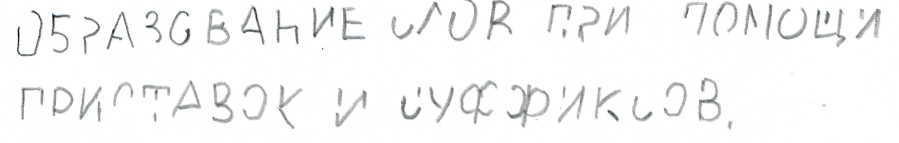 ОБРАЗОВАНИЕ СЛОВ ПРИ ПОМОЩИ
ПРИСТАВОК И СУФФИКСОВ.